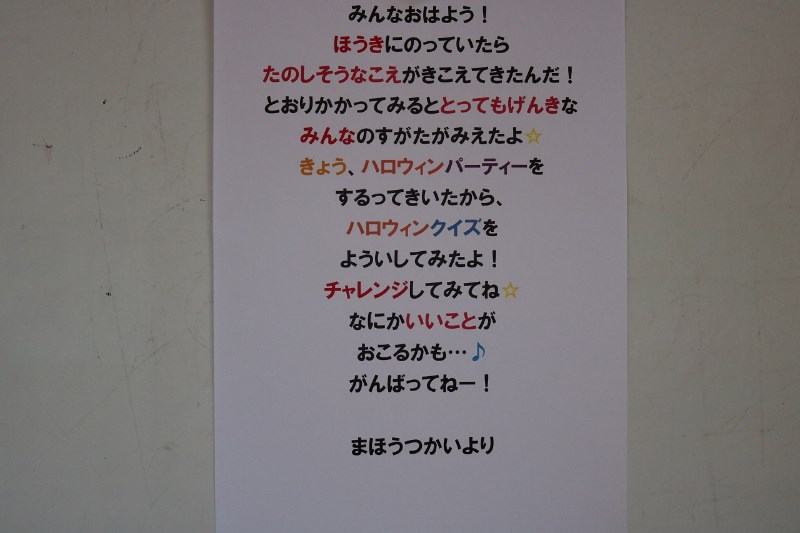 みんなおはよう！
ほうきにのっていたら
たのしそうなこえがきこえてきたんだ！
とおりかかってみるととってもげんきな
みんなのすがたがみえたよ☆
きょう、ハロウィンパーティーを
するってきいたから、
ハロウィンクイズを
よういしてみたよ！
チャレンジしてみてね☆
なにかいいことが
おこるかも…♪
がんばってねー！
まほうつかいより